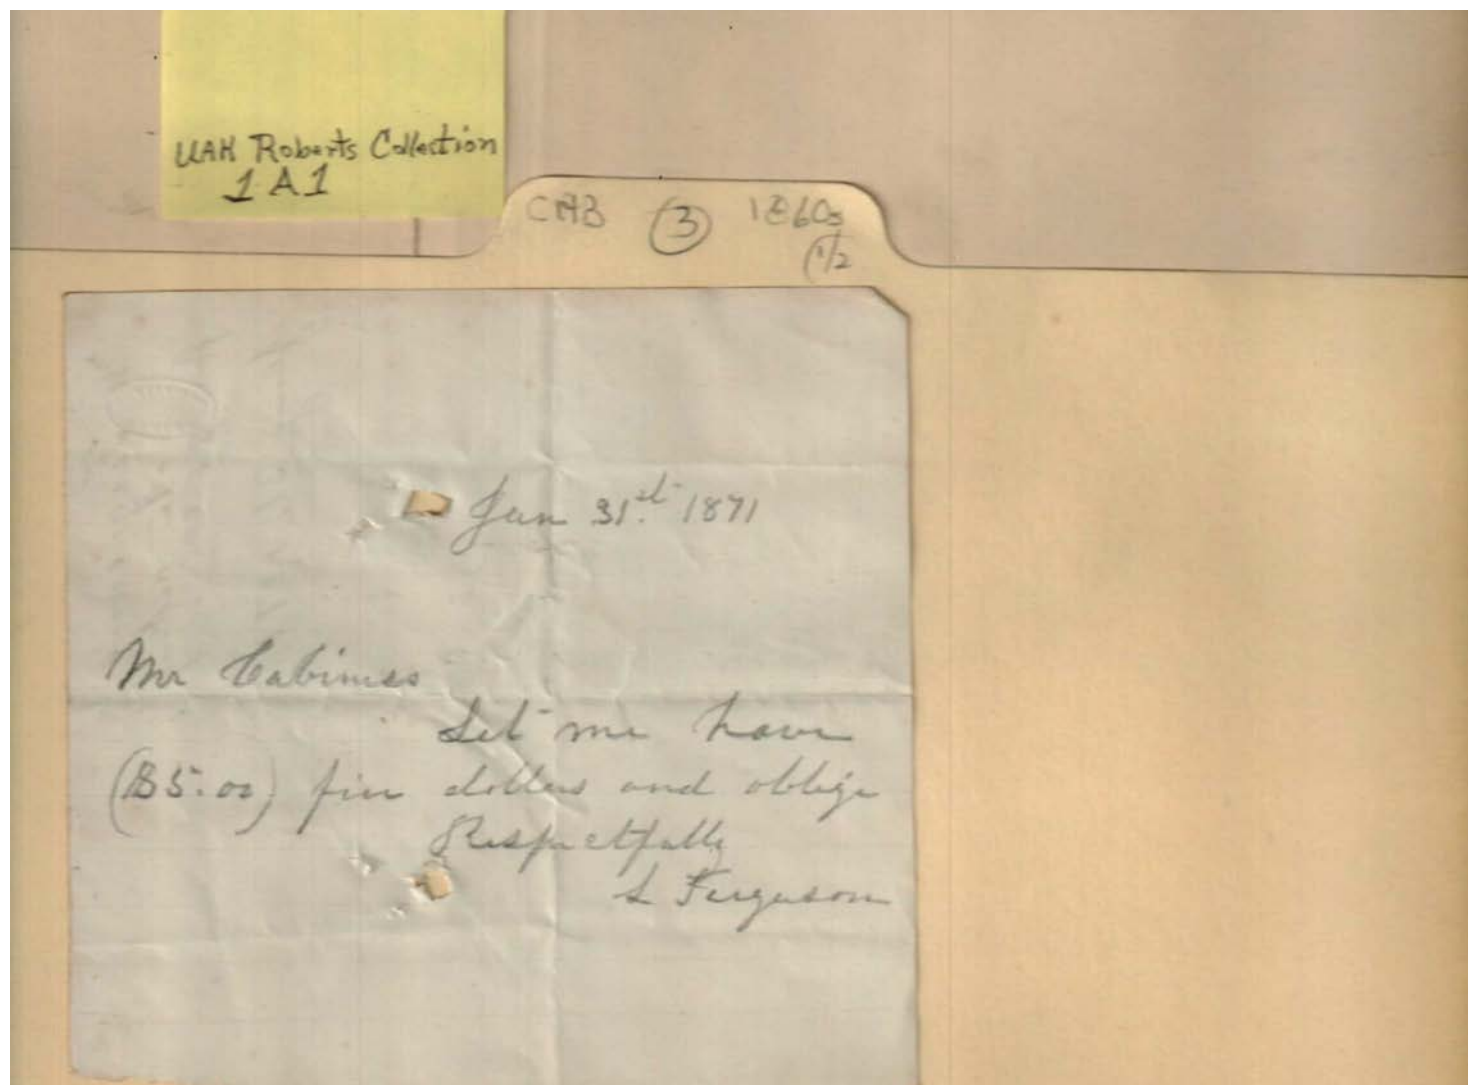 UAH Roberts Collection
1 A 1
CAB ③ 1860s
(1/2
Jan 31st 1871
Mr Cabiness
Let me have
($5.00) five dollers and oblige
Respectfully
L Ferguson